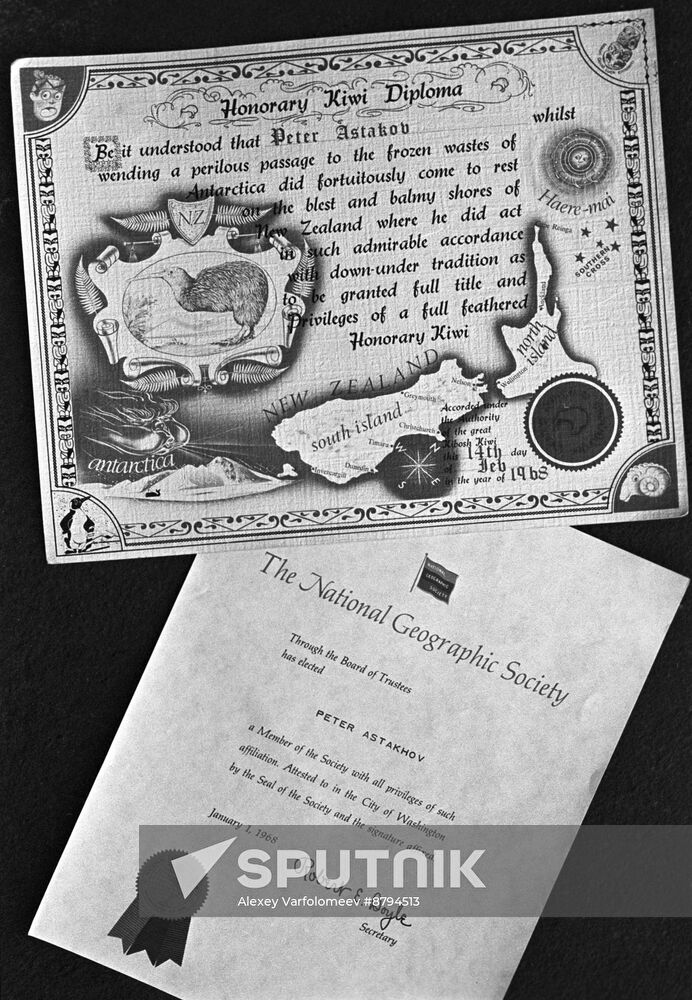 Honorary Kiwi Diploma
Be it understood that Peter Astakov whilst
wending a perilous passage to the frozen wastes of
Antarctica did fortuitously come to rest
on the blest and balmy shores of
New Zealand where he did act
in such admirable accordance
with down-under tradition as
to be granted full title and
Privileges of a full feathered
Honorary Kiwi
NZ
Haere-mai
Reinga
SOUTHERN
CROSS
Auckland
north
island
Wellington
NEW ZEALAND
Nelson
Greymouth
south island
Christchurch
Timaru
Dunedin
Invercargill
N
E
S
W
antarctica
Accorded under
the Authority
of the great
Kibosh Kiwi
this 14th day
of Feb
in the year of 1968
NATIONAL
GEOGRAPHIC
SOCIETY
The National Geographic Society
Through the Board of Trustees
has elected
PETER ASTAKHOV
a Member of the Society with all privileges of such
affiliation. Attested to in the City of Washington
by the Seal of the Society and the signature affixed
January 1, 1968
Robert E. Doyle
Secretary
SPUTNIK
Alexey Varfolomeev #8794513